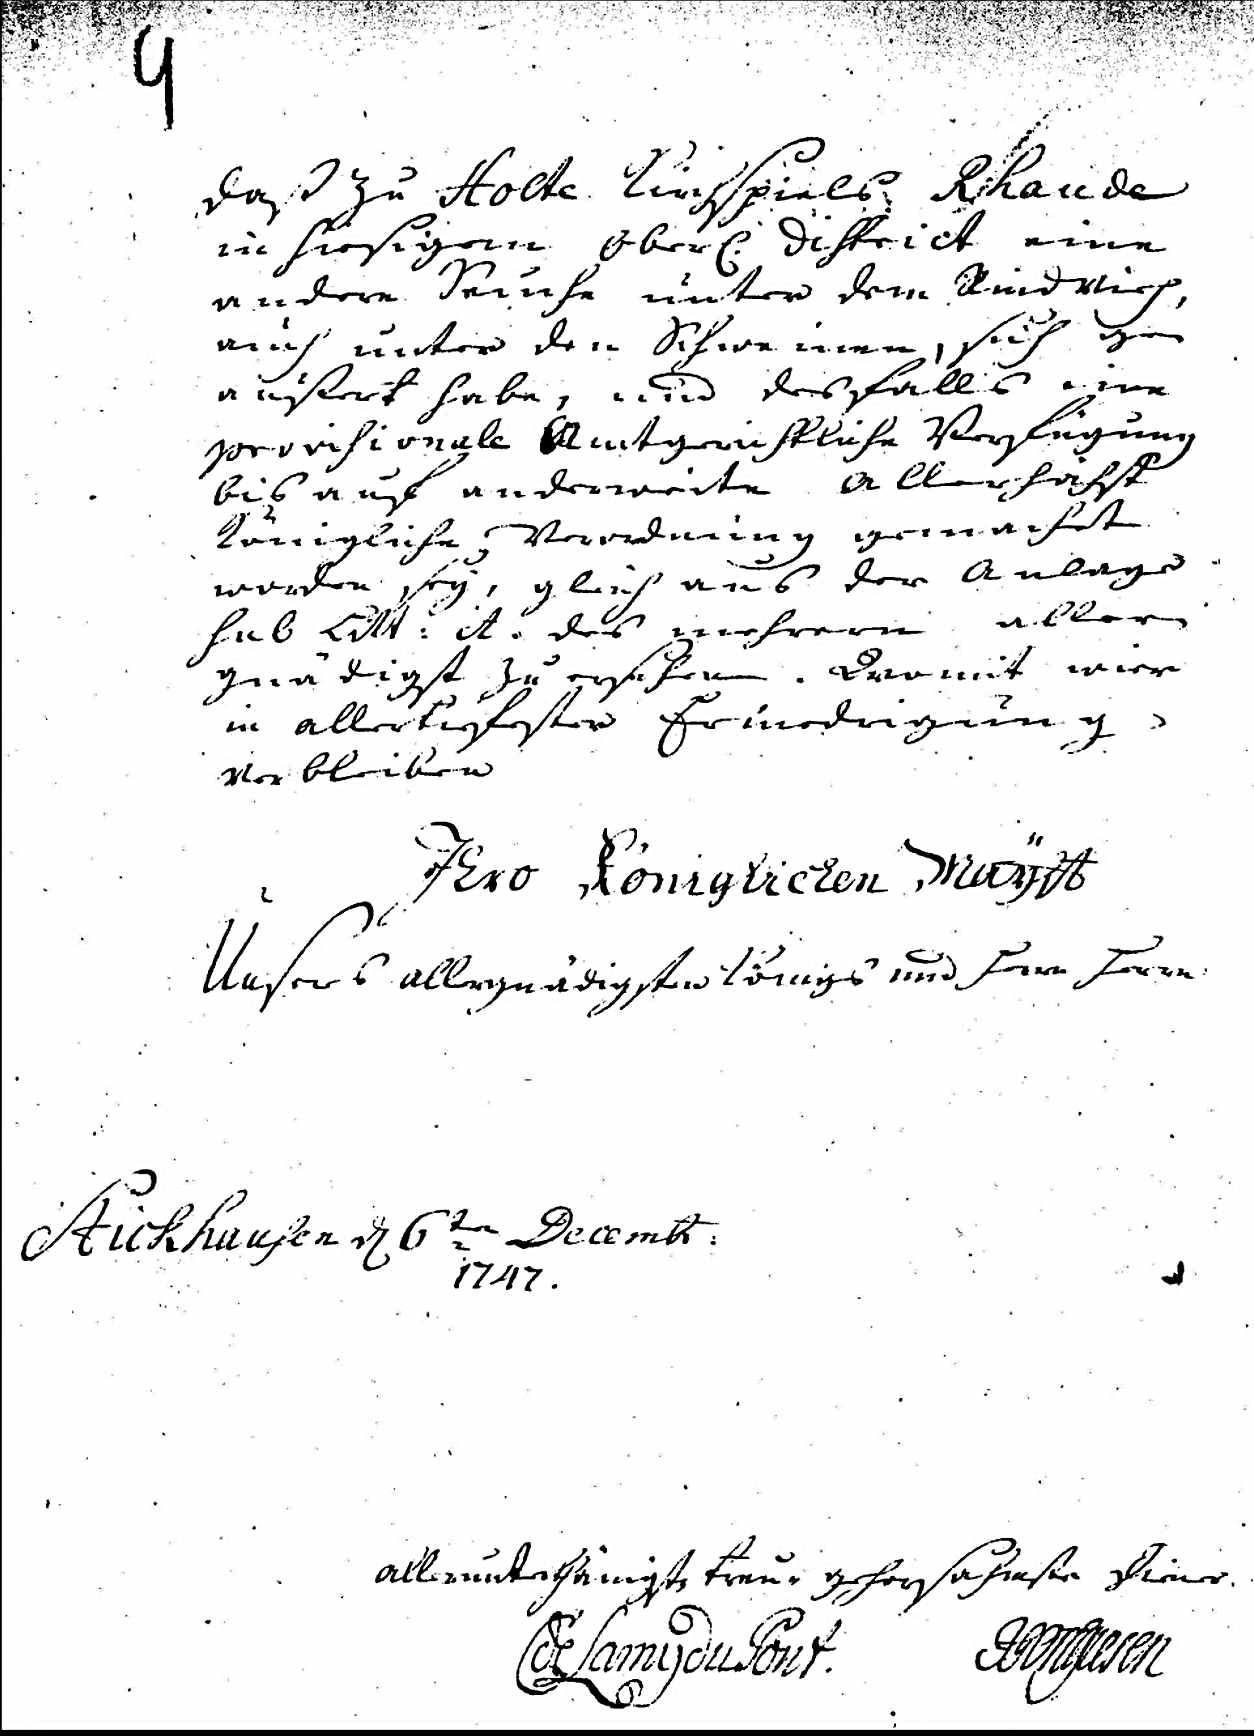 4
daß zu Holte Kirchspiels Rhaude
in hiesigem Ober District eine
andere Seuche unter dem Rindvieh,
auch unter den Schweinen, sich ge
äußert habe, und desfalls eine
provisionale Amtgerichtliche Verfügung
bis auf anderweite Allerhöchst
Königliche Verordnung gemachet
worden sey, glich aus der Anlage
sub Litt: A. des mehrern aller
gnädigst zu ersehen. Womit wier
in allertiefster Erniedrigung
verbleiben
Ihro Königlichen Mayſtt
Unsers allergnädigsten Königs und Herrn Herrn
Stickhausen d 6ten Decembr:
1747.
allerunterthänigste treu gehorsahmste Diener.
de Lamy du Pont.